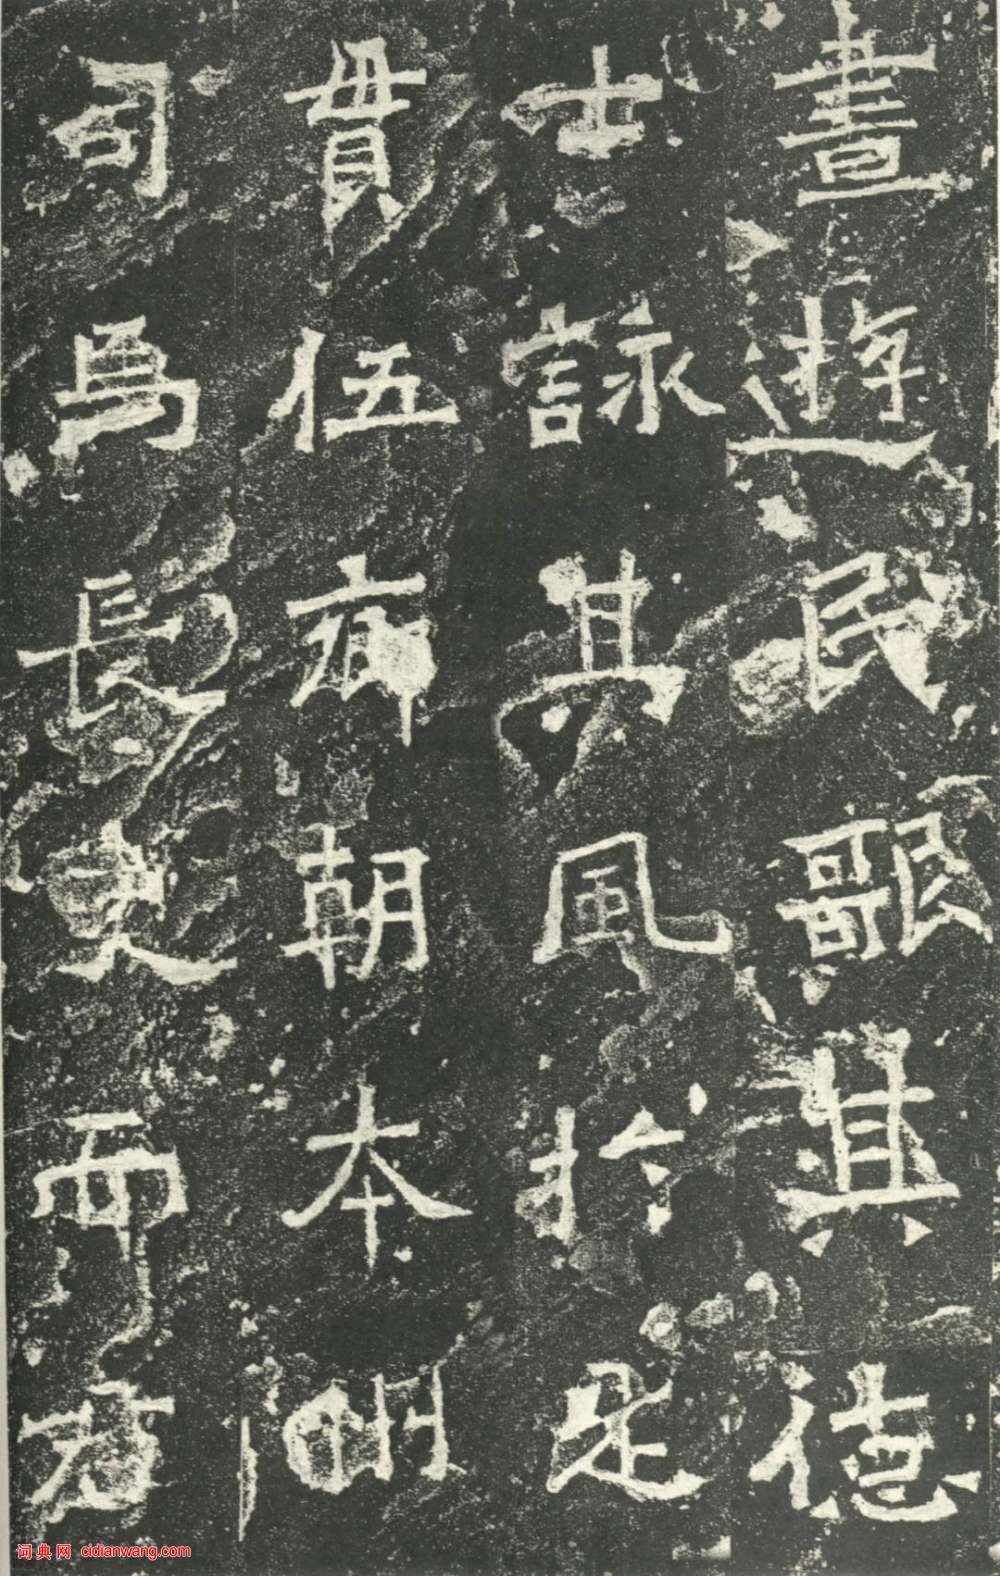 晝遊民歌其德
士詠其風扵是
貫伍朝本州
司馬長史而
词典网 cidianwang.com